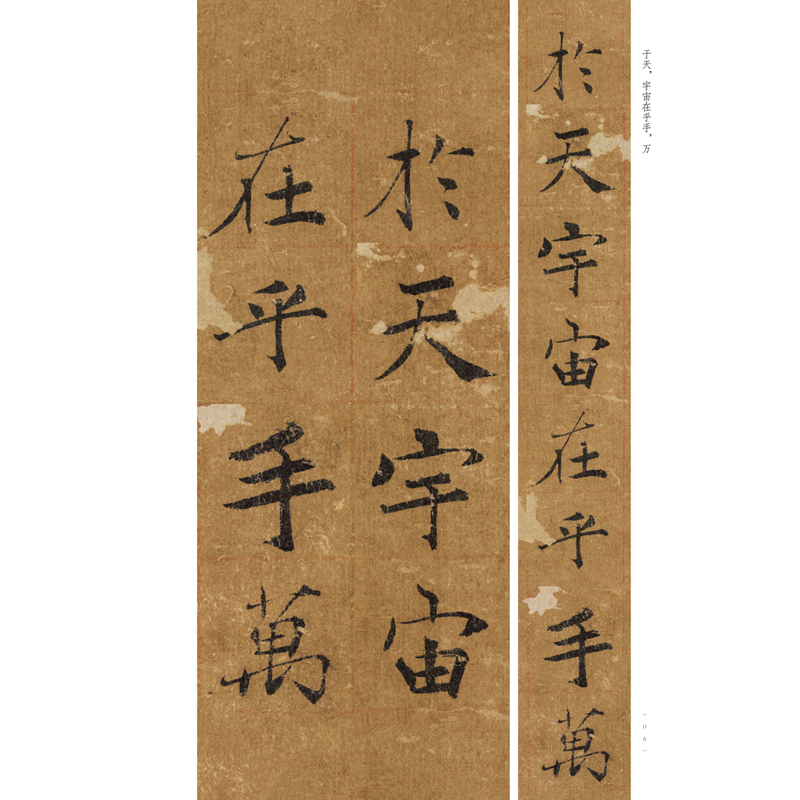 于天，宇宙在乎手，万
於天宇宙在乎手萬
於天宇宙
在乎手萬
~06~